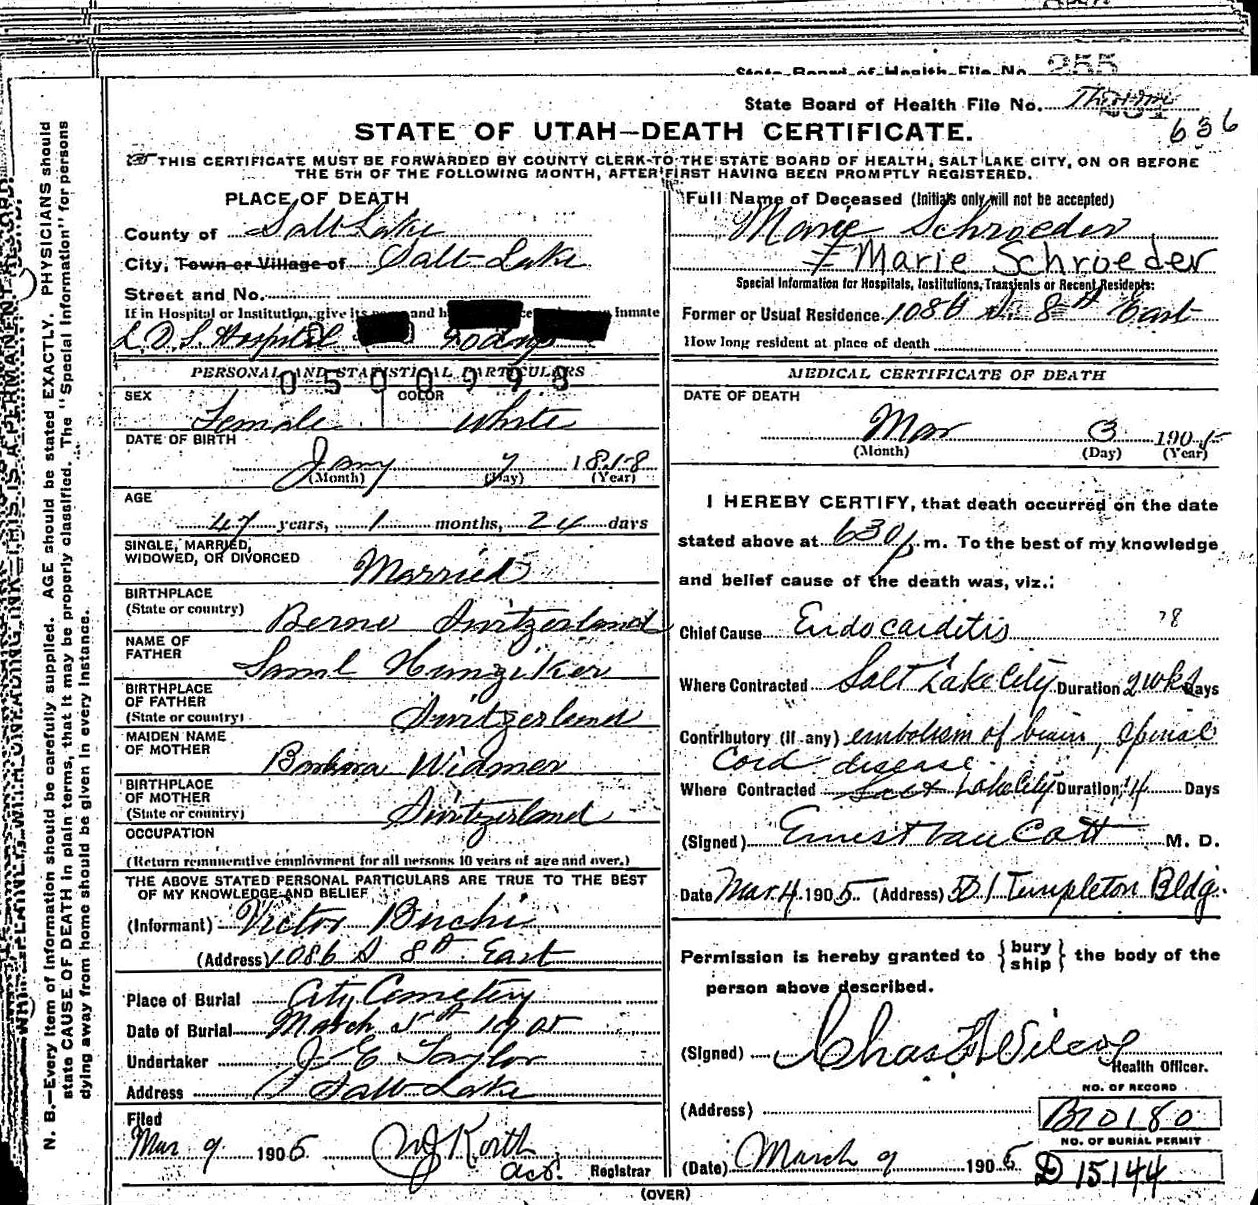 State Board of Health File No. 255
State Board of Health File No.
636
STATE OF UTAH—DEATH CERTIFICATE.
THIS CERTIFICATE MUST BE FORWARDED BY COUNTY CLERK TO THE STATE BOARD OF HEALTH, SALT LAKE CITY, ON OR BEFORE
THE 5TH OF THE FOLLOWING MONTH, AFTER FIRST HAVING BEEN PROMPTLY REGISTERED.
N. B.—Every item of information should be carefully supplied. AGE should be stated EXACTLY. PHYSICIANS should
state CAUSE OF DEATH in plain terms, that it may be properly classified. The "Special Information" for persons
dying away from home should be given in every instance.
PLACE OF DEATH
County of Salt Lake
City, Town or Village of Salt Lake
Street and No.
If in Hospital or Institution, give its name and Inmate
L.D.S. Hospital 20 days
PERSONAL AND STATISTICAL PARTICULARS
0500998
SEX Female COLOR White
DATE OF BIRTH
Jany 7 1858
(Month) (Day) (Year)
AGE
47 years, 1 months, 24 days
SINGLE, MARRIED,
WIDOWED, OR DIVORCED Married
BIRTHPLACE
(State or country) Berne Switzerland
NAME OF
FATHER Saml Hunziker
BIRTHPLACE
OF FATHER
(State or country) Switzerland
MAIDEN NAME
OF MOTHER Barbara Widmer
BIRTHPLACE
OF MOTHER
(State or country) Switzerland
OCCUPATION
(Return remunerative employment for all persons 10 years of age and over.)
THE ABOVE STATED PERSONAL PARTICULARS ARE TRUE TO THE BEST
OF MY KNOWLEDGE AND BELIEF
(Informant) Victor Buchi
(Address) 1086 S 8th East
Place of Burial City Cemetery
Date of Burial March 5th 1905
Undertaker J E Taylor
Address Salt Lake
Filed
Mar 9 1905 W J Korth
Registrar
Full Name of Deceased (Initials only will not be accepted)
Marie Schroeder
Marie Schroeder
Special Information for Hospitals, Institutions, Transients or Recent Residents:
Former or Usual Residence 1086 So. 8th East
How long resident at place of death
MEDICAL CERTIFICATE OF DEATH
DATE OF DEATH
Mar 3 1905
(Month) (Day) (Year)
I HEREBY CERTIFY, that death occurred on the date
stated above at 630 p.m. To the best of my knowledge
and belief cause of the death was, viz.:
Chief Cause Endocarditis 78
Where Contracted Salt Lake City Duration 2 wks Days
Contributory (if any) embolism of brain, spinal
Cord disease
Where Contracted Salt Lake City Duration 14 Days
(Signed) Ernest Van Cott M. D.
Date Mar. 4 1905 (Address) 501 Templeton Bldg.
Permission is hereby granted to {bury
ship} the body of the
person above described.
(Signed) Chas F Wilcox
Health Officer.
NO. OF RECORD
(Address) B10180
NO. OF BURIAL PERMIT
(Date) March 9 1905 D 15144
(OVER)